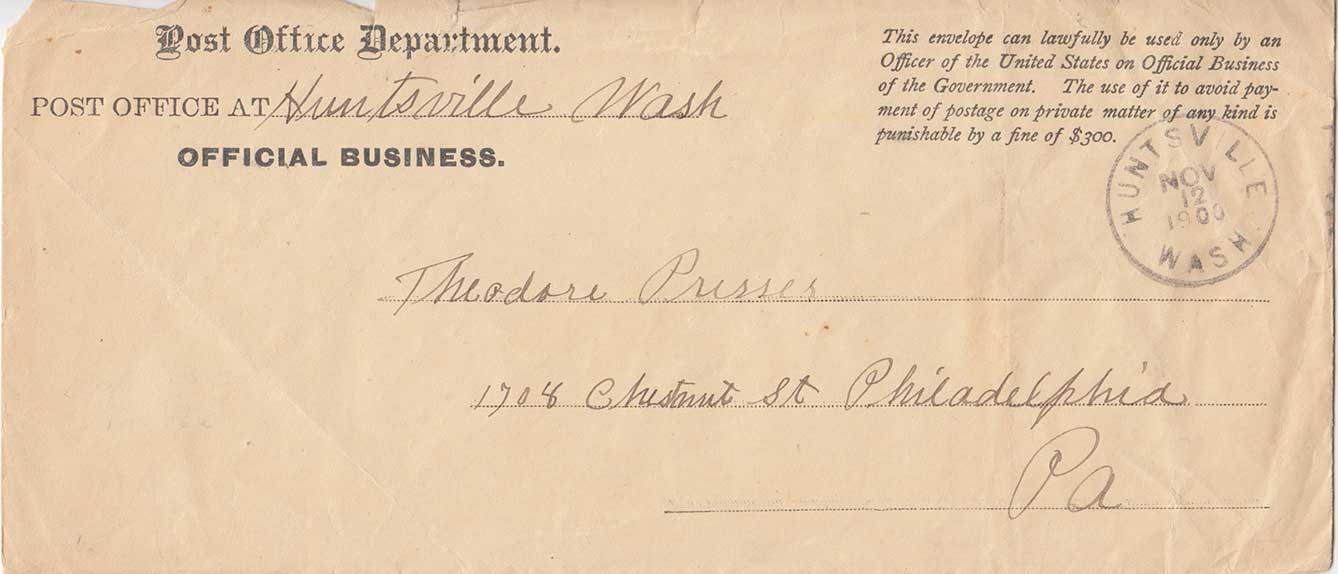 Post Office Department.
POST OFFICE AT Huntsville Wash
OFFICIAL BUSINESS.
This envelope can lawfully be used only by an
Officer of the United States on Official Business
of the Government. The use of it to avoid pay-
ment of postage on private matter of any kind is
punishable by a fine of $300.
HUNTSVILLE
NOV
12
WASH
Theodore Presser
1708 Chestnut St Philadelphia
Pa